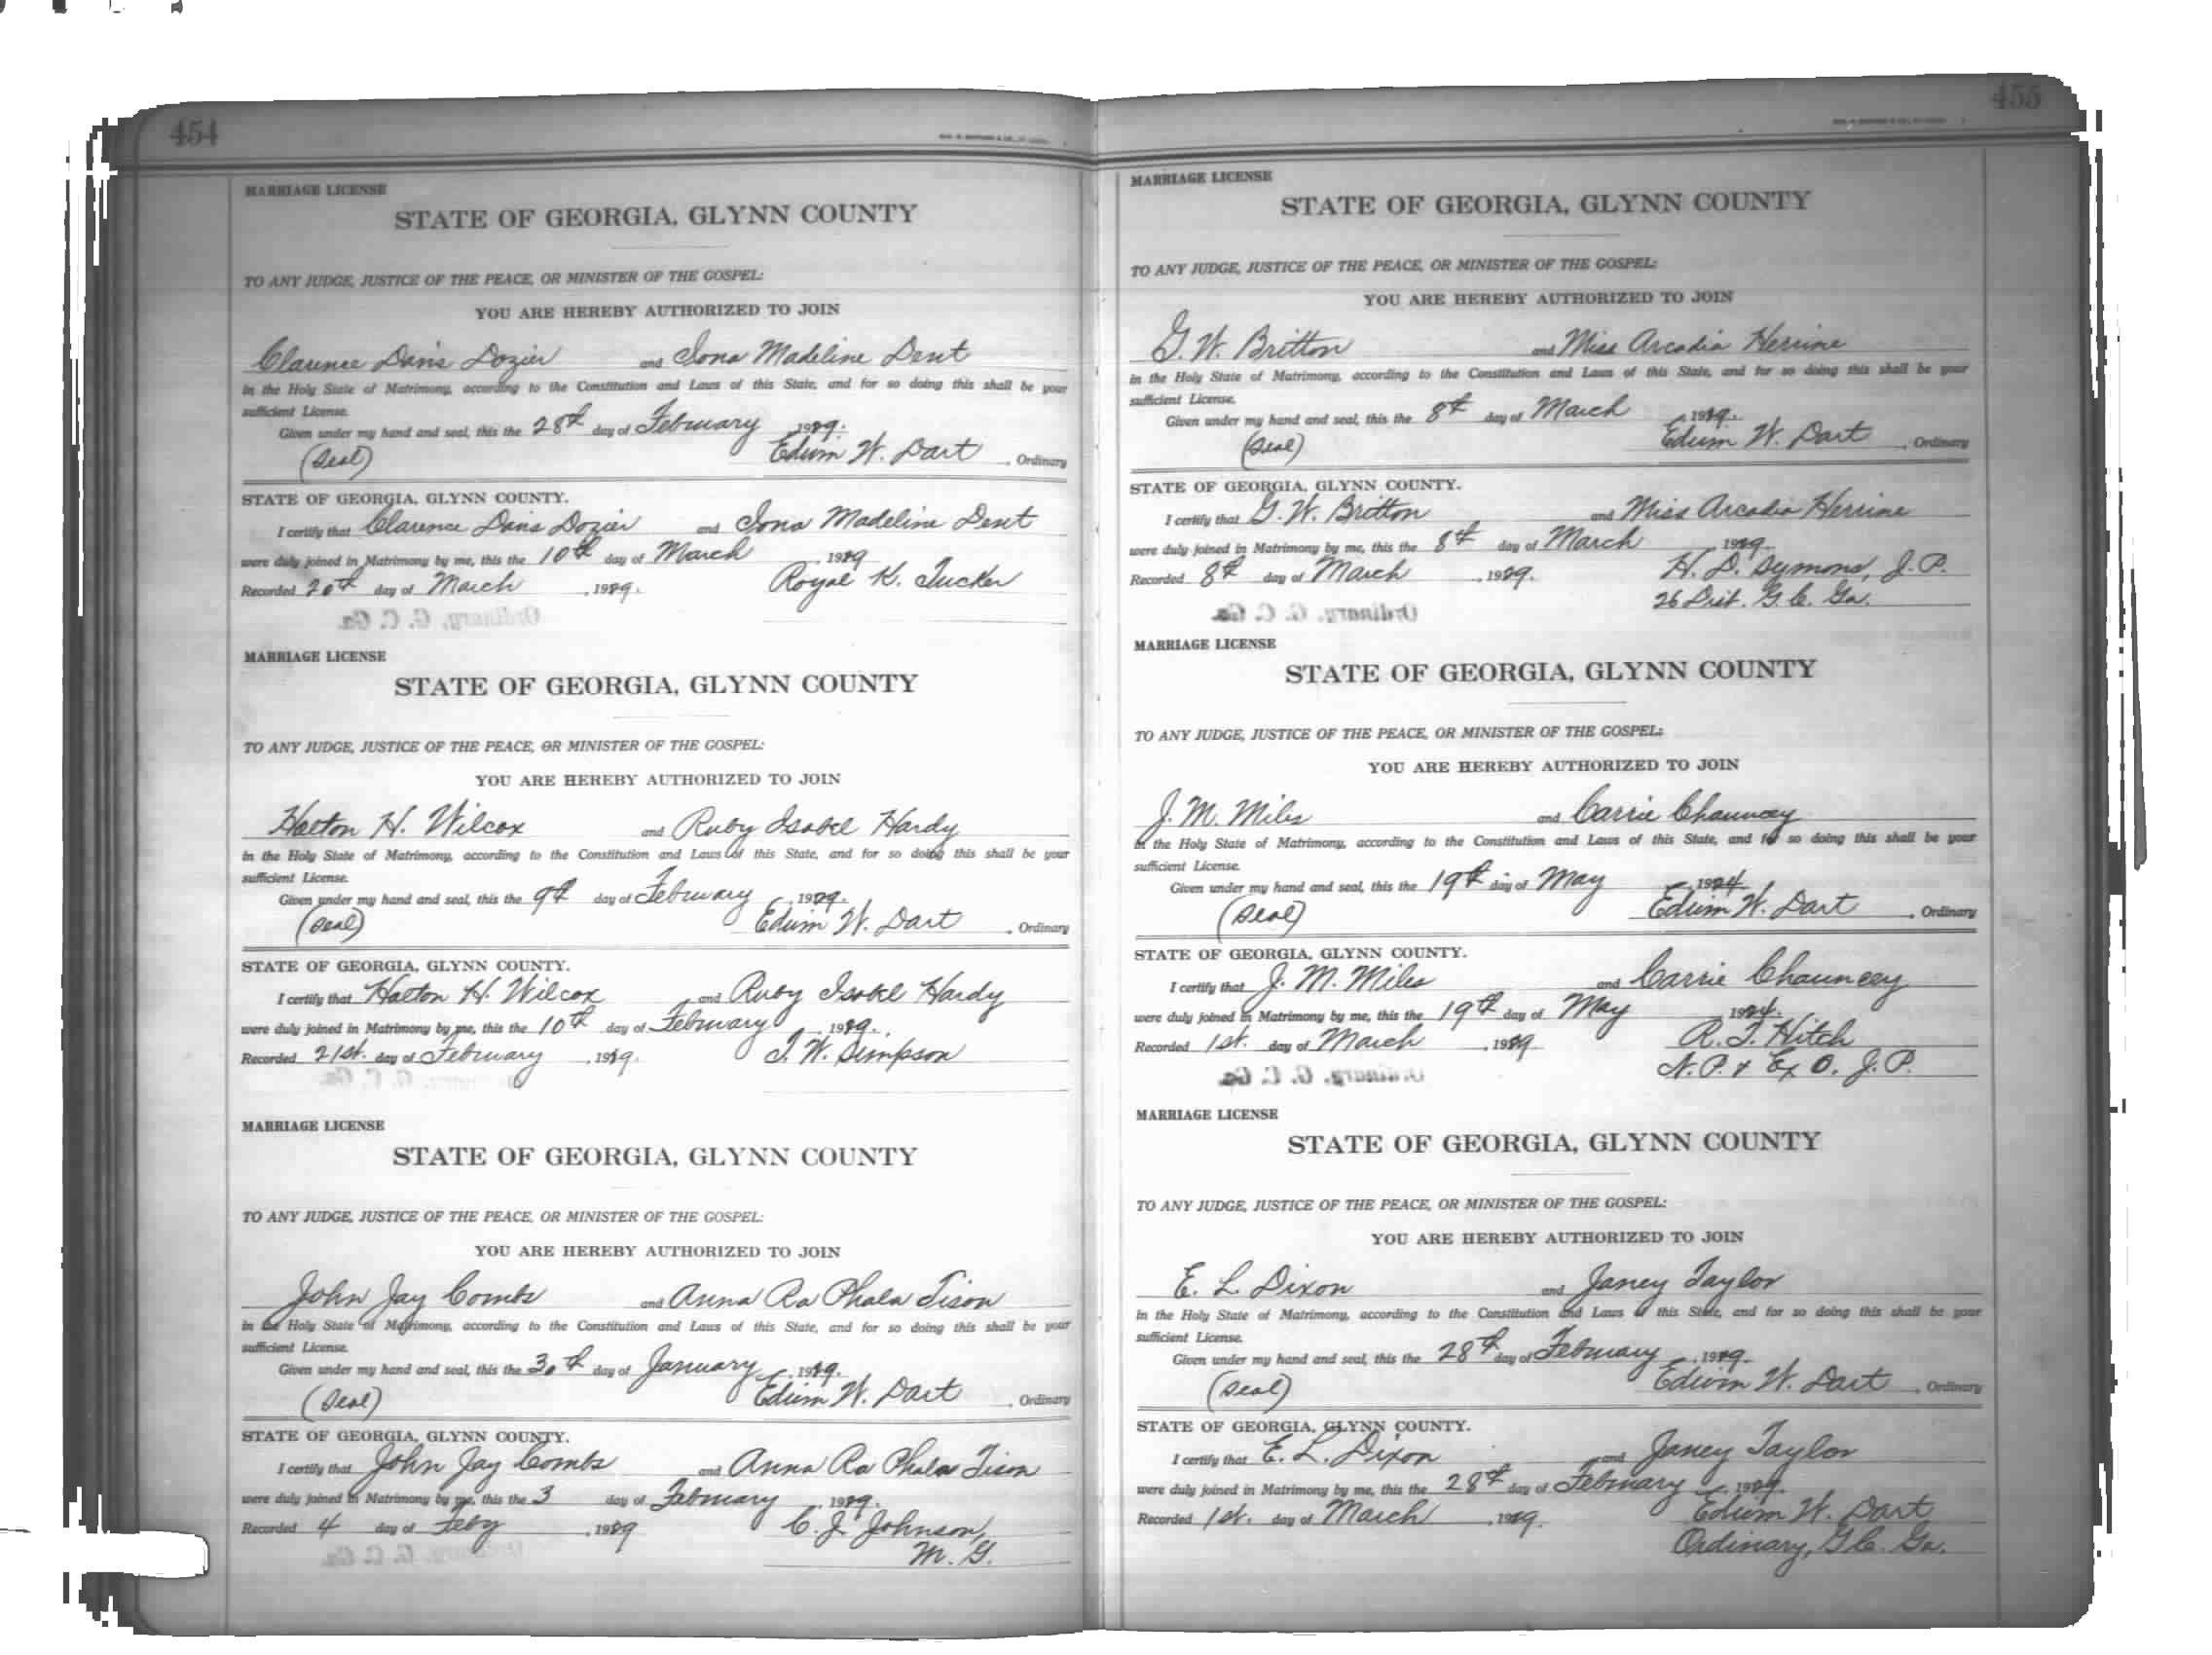 454
MARRIAGE LICENSE
STATE OF GEORGIA, GLYNN COUNTY
TO ANY JUDGE, JUSTICE OF THE PEACE, OR MINISTER OF THE GOSPEL:
YOU ARE HEREBY AUTHORIZED TO JOIN
Clarence Davis Dozier and Iona Madeline Dent
in the Holy State of Matrimony, according to the Constitution and Laws of this State, and for so doing this shall be your
sufficient License.
Given under my hand and seal, this the 28th day of February 1929.
(Seal) Edwin W. Dart, Ordinary
STATE OF GEORGIA, GLYNN COUNTY.
I certify that Clarence Davis Dozier and Iona Madeline Dent
were duly joined in Matrimony by me, this the 10th day of March, 1929
Recorded 20th day of March, 1929. Royal K. Tucker
Ordinary, G. C. Ga
MARRIAGE LICENSE
STATE OF GEORGIA, GLYNN COUNTY
TO ANY JUDGE, JUSTICE OF THE PEACE, OR MINISTER OF THE GOSPEL:
YOU ARE HEREBY AUTHORIZED TO JOIN
Halton H. Wilcox and Ruby Isabel Hardy
in the Holy State of Matrimony, according to the Constitution and Laws of this State, and for so doing this shall be your
sufficient License.
Given under my hand and seal, this the 9th day of February, 1929.
(Seal) Edwin W. Dart, Ordinary
STATE OF GEORGIA, GLYNN COUNTY.
I certify that Halton H. Wilcox and Ruby Isabel Hardy
were duly joined in Matrimony by me, this the 10th day of February, 1929.
Recorded 21st. day of February, 1929. T. W. Simpson
G. C. Ga
MARRIAGE LICENSE
STATE OF GEORGIA, GLYNN COUNTY
TO ANY JUDGE, JUSTICE OF THE PEACE, OR MINISTER OF THE GOSPEL:
YOU ARE HEREBY AUTHORIZED TO JOIN
John Jay Combs and Anna Ra Phala Tison
in the Holy State of Matrimony, according to the Constitution and Laws of this State, and for so doing this shall be your
sufficient License.
Given under my hand and seal, this the 30th day of January, 1929.
(Seal) Edwin W. Dart Ordinary
STATE OF GEORGIA, GLYNN COUNTY.
I certify that John Jay Combs and Anna Ra Phala Tison
were duly joined in Matrimony by me, this the 3 day of February, 1929.
Recorded 4 day of Feby, 1929 C. J. Johnson,
M. G.
G. C. Ga
455
MARRIAGE LICENSE
STATE OF GEORGIA, GLYNN COUNTY
TO ANY JUDGE, JUSTICE OF THE PEACE, OR MINISTER OF THE GOSPEL:
YOU ARE HEREBY AUTHORIZED TO JOIN
G. W. Britton and Miss Arcadia Herrine
in the Holy State of Matrimony, according to the Constitution and Laws of this State, and for so doing this shall be your
sufficient License.
Given under my hand and seal, this the 8th day of March, 1929.
(Seal) Edwin W. Dart, Ordinary
STATE OF GEORGIA, GLYNN COUNTY.
I certify that G. W. Britton and Miss Arcadia Herrine
were duly joined in Matrimony by me, this the 8th day of March, 1929.
Recorded 8th day of March, 1929. H. D. Symons, J. P.
26 Dist. G. C. Ga.
Ordinary, G. C. Ga.
MARRIAGE LICENSE
STATE OF GEORGIA, GLYNN COUNTY
TO ANY JUDGE, JUSTICE OF THE PEACE, OR MINISTER OF THE GOSPEL:
YOU ARE HEREBY AUTHORIZED TO JOIN
J. M. Miles and Carrie Chauncey
in the Holy State of Matrimony, according to the Constitution and Laws of this State, and for so doing this shall be your
sufficient License.
Given under my hand and seal, this the 19th day of May, 1924
(Seal) Edwin W. Dart, Ordinary
STATE OF GEORGIA, GLYNN COUNTY.
I certify that J. M. Miles and Carrie Chauncey
were duly joined in Matrimony by me, this the 19th day of May 1924.
Recorded 1st. day of March, 1929 R. T. Hitch
N. P. & Ex O. J. P.
Ordinary, G. C. Ga.
MARRIAGE LICENSE
STATE OF GEORGIA, GLYNN COUNTY
TO ANY JUDGE, JUSTICE OF THE PEACE, OR MINISTER OF THE GOSPEL:
YOU ARE HEREBY AUTHORIZED TO JOIN
E. L. Dixon and Janey Taylor
in the Holy State of Matrimony, according to the Constitution and Laws of this State, and for so doing this shall be your
sufficient License.
Given under my hand and seal, this the 28th day of February, 1929.
(Seal) Edwin W. Dart, Ordinary
STATE OF GEORGIA, GLYNN COUNTY.
I certify that E. L. Dixon and Janey Taylor
were duly joined in Matrimony by me, this the 28th day of February, 1929.
Recorded 1st. day of March, 1929. Edwin W. Dart
Ordinary, G. C. Ga.